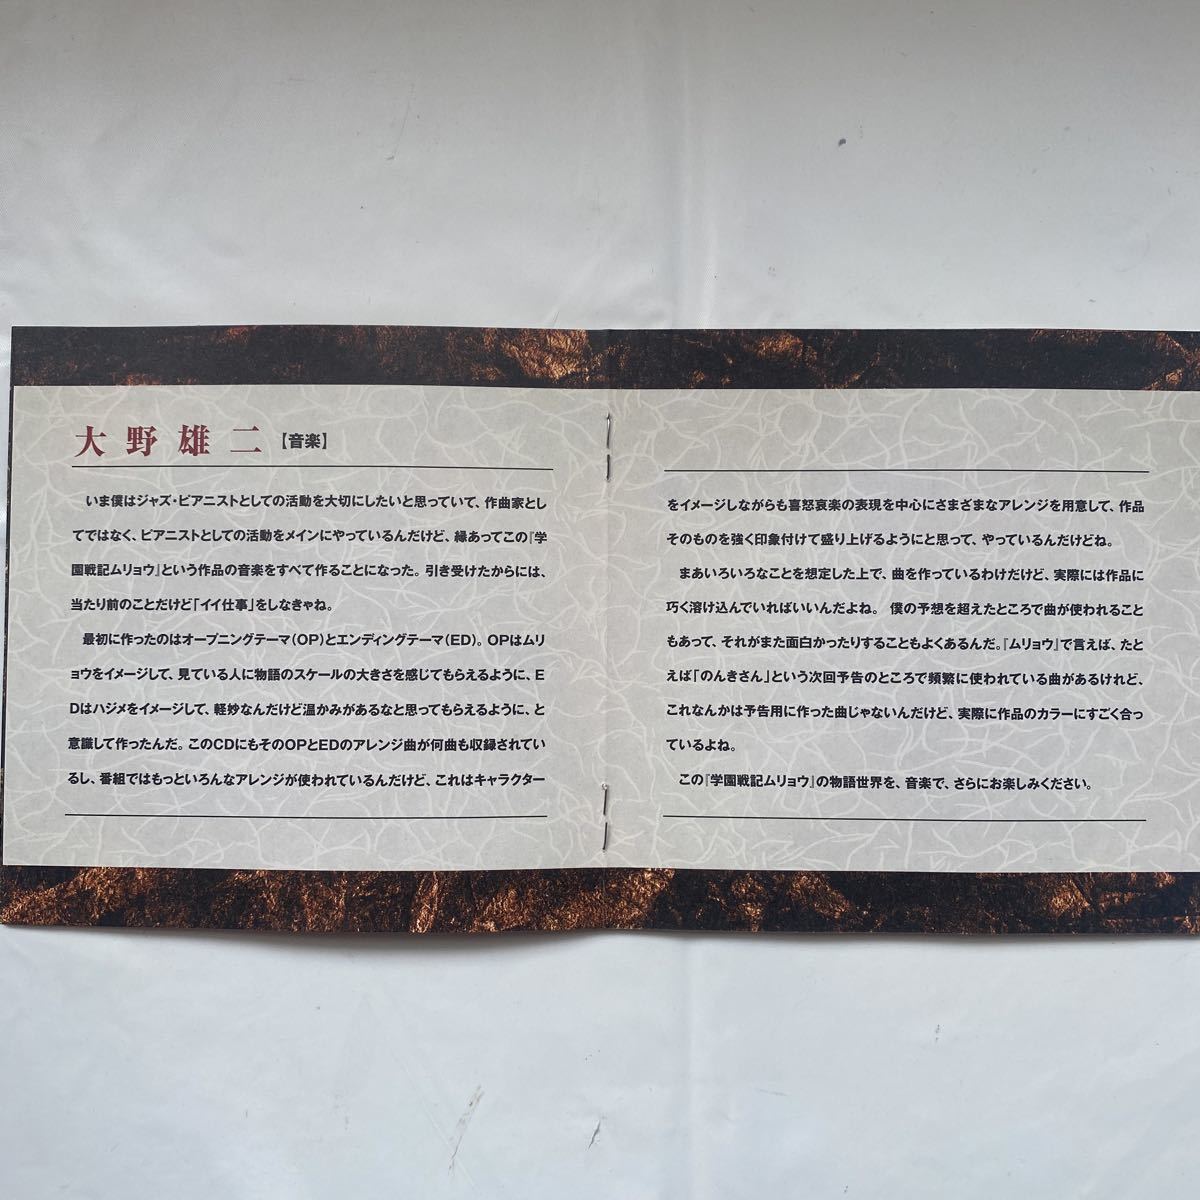 大野雄二【音楽】
いま僕はジャズ・ピアニストとしての活動を大切にしたいと思っていて、作曲家とし
てではなく、ピアニストとしての活動をメインにやっているんだけど、縁あってこの『学
園戦記ムリョウ』という作品の音楽をすべて作ることになった。引き受けたからには、
当たり前のことだけど「イイ仕事」をしなきゃね。
最初に作ったのはオープニングテーマ(OP)とエンディングテーマ(ED)。OPはムリ
ョウをイメージして、見ている人に物語のスケールの大きさを感じてもらえるように、E
Dはハジメをイメージして、軽妙なんだけど温かみがあるなと思ってもらえるように、と
意識して作ったんだ。このCDにもそのOPとEDのアレンジ曲が何曲も収録されてい
るし、番組ではもっといろんなアレンジが使われているんだけど、これはキャラクター
をイメージしながらも喜怒哀楽の表現を中心にさまざまなアレンジを用意して、作品
そのものを強く印象付けて盛り上げるようにと思って、やっているんだけどね。
まあいろいろなことを想定した上で、曲を作っているわけだけど、実際には作品に
巧く溶け込んでいればいいんだよね。 僕の予想を超えたところで曲が使われること
もあって、それがまた面白かったりすることもよくあるんだ。『ムリョウ』で言えば、たと
えば「のんきさん」という次回予告のところで頻繁に使われている曲があるけれど、
これなんかは予告用に作った曲じゃないんだけど、実際に作品のカラーにすごく合っ
ているよね。
この『学園戦記ムリョウ』の物語世界を、音楽で、さらにお楽しみください。